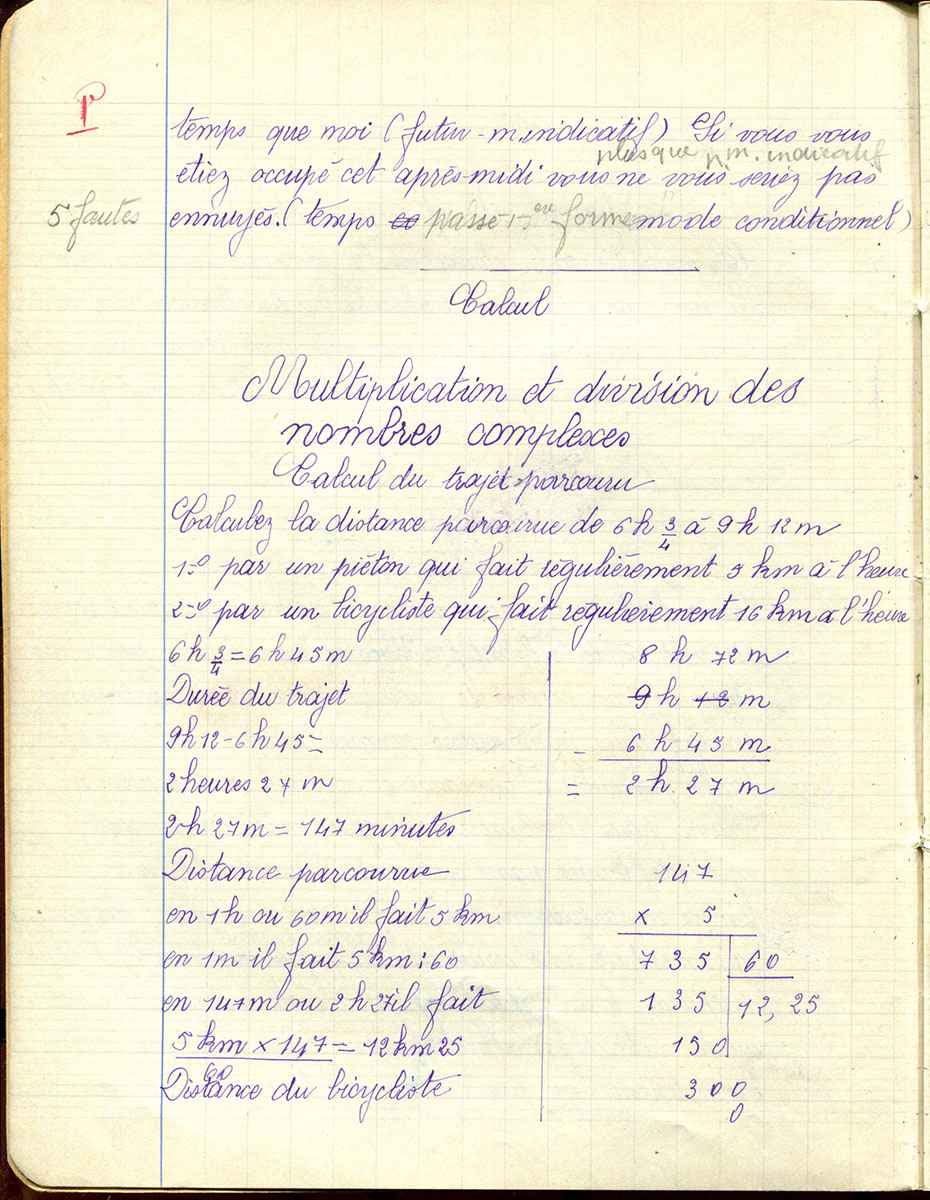 P
temps que moi (futur - m.indicatif) Si vous vous
plus que p m. indicatif
etiez occupé cet après-midi vous ne vous seriez pas
5 fautes
ennuyés. (temps passé 1ère forme mode conditionnel)
Calcul
Multiplication et division des
nombres complexes
Calcul du trajet parcouru
Calculez la distance parcourue de 6h 3/4 à 9h 12m
1º par un piéton qui fait régulièrement 5 km à l'heure
2º par un bicycliste qui fait régulièrement 16 km a l'heure
6h 3/4 = 6h 45m
Durée du trajet
9h12 - 6h45 =
2 heures 27 m
2h 27m = 147 minutes
Distance parcourue
en 1h ou 60m il fait 5 km
en 1m il fait 5 km : 60
en 147m ou 2h 27 il fait
5 km × 147 = 12 km 25
60
Distance du bicycliste
8 h 72 m
9 h 12 m
- 6 h 45 m
= 2 h. 27 m
147
× 5
735 60
135 12,25
150
300
0